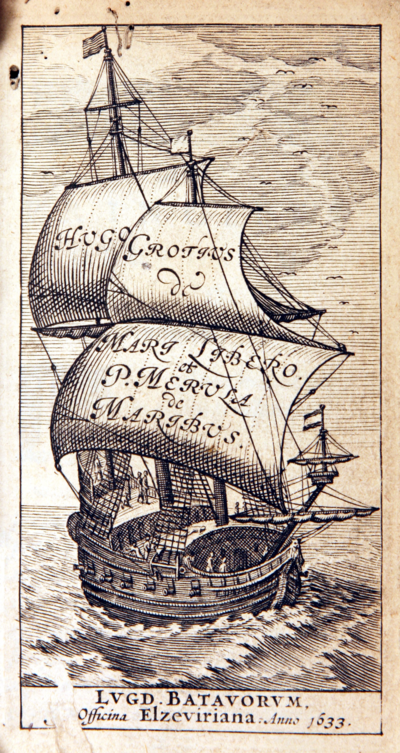 HUGO GROTIUS
de
MARI LIBERO.
et
P. MERULA
de
MARIBUS.
LVGD. BATAVORVM.
Officina Elzeviriana: Anno 1633.